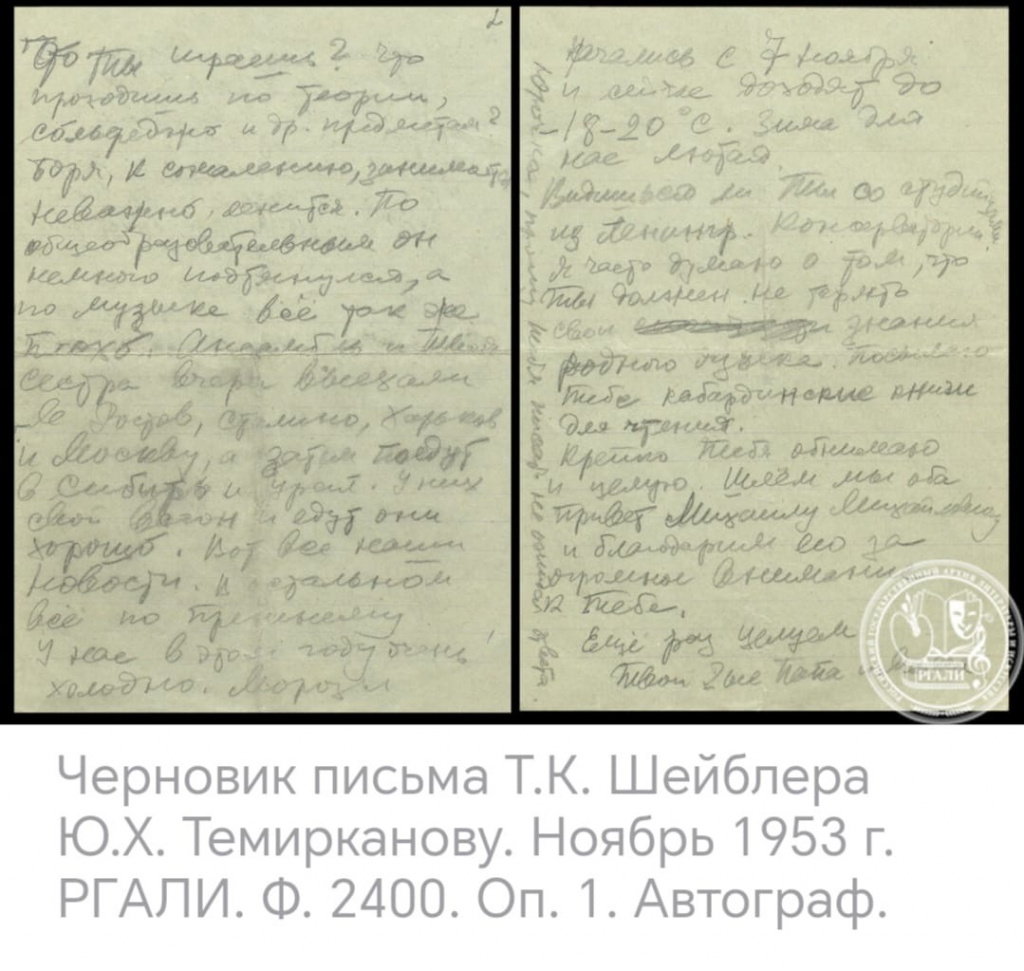 2
Что Ты играешь? Что
проходишь по теории,
сольфеджио и др. предметам?
Боря, к сожалению, занимается
неважно, ленится. По
общеобразовательным он
немного подтянулся, а
по музыке всё так же
плохо. Ансамбль и Твоя
сестра вчера выехали
в Ростов, Сталино, Харьков
и Москву, а затем поедут
в Сибирь и Урал. У них
свой вагон и едут они
хорошо. Вот все наши
новости. В остальном
всё по прежнему
У нас в этом году очень
холодно. Морозы
начались с 7 ноября
и сейчас доходят до
-18-20°C. Зима для
нас лютая.
Видишься ли Ты со студентами
из Ленингр. Консерватории.
Я часто думаю о том, что
Ты должен не терять
свои знания
родного языка. Посылаю
Тебе кабардинские книги
для чтения.
Крепко Тебя обнимаю
и целую. Шлём мы оба
привет Михаилу Михайловичу
и благодарим его за
огромное внимание
к Тебе.
Ещё раз целуем
Твои 2ые Папа и
Юрочка, прошу Тебя писать не ожидая ответа.
РОССИЙСКИЙ ГОСУДАРСТВЕННЫЙ АРХИВ ЛИТЕРАТУРЫ И ИСКУССТВА
РГАЛИ
Черновик письма Т.К. Шейблера
Ю.Х. Темирканову. Ноябрь 1953 г.
РГАЛИ. Ф. 2400. Оп. 1. Автограф.